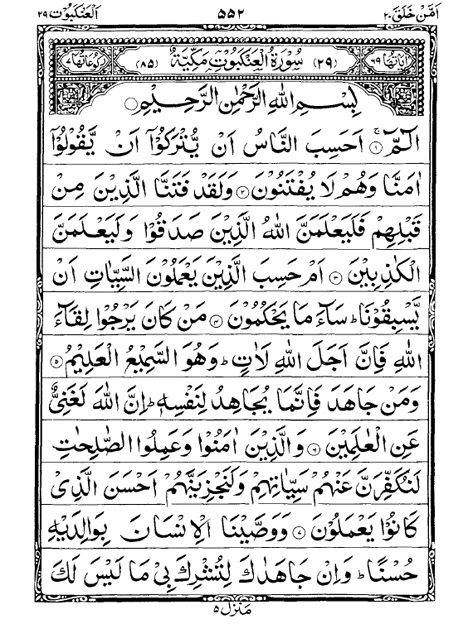 اَمَّنْ خَلَقَ ٢٠ ٥٥٢ اَلْعَنْكَبُوْت ٢٩
اٰيَاتُهَا ٦٩ (٢٩) سُوْرَةُ الْعَنْكَبُوْتِ مَكِّيَّةٌ (٨٥) رُكُوْعَاتُهَا ٧
بِسْمِ اللهِ الرَّحْمٰنِ الرَّحِيْمِ
الٓمّٓ ۚ﴿١﴾ اَحَسِبَ النَّاسُ اَنْ يُّتْرَكُوْٓا اَنْ يَّقُوْلُوْٓا
اٰمَنَّا وَهُمْ لَا يُفْتَنُوْنَ ﴿٢﴾ وَلَقَدْ فَتَنَّا الَّذِيْنَ مِنْ
قَبْلِهِمْ فَلَيَعْلَمَنَّ اللهُ الَّذِيْنَ صَدَقُوْا وَلَيَعْلَمَنَّ
الْكٰذِبِيْنَ ﴿٣﴾ اَمْ حَسِبَ الَّذِيْنَ يَعْمَلُوْنَ السَّيِّاٰتِ اَنْ
يَّسْبِقُوْنَا ؕ سَآءَ مَا يَحْكُمُوْنَ ﴿٤﴾ مَنْ كَانَ يَرْجُوْا لِقَآءَ
اللهِ فَاِنَّ اَجَلَ اللهِ لَاٰتٍ ؕ وَهُوَ السَّمِيْعُ الْعَلِيْمُ ﴿٥﴾
وَمَنْ جَاهَدَ فَاِنَّمَا يُجَاهِدُ لِنَفْسِهٖ ؕ اِنَّ اللهَ لَغَنِيٌّ
عَنِ الْعٰلَمِيْنَ ﴿٦﴾ وَالَّذِيْنَ اٰمَنُوْا وَعَمِلُوا الصّٰلِحٰتِ
لَنُكَفِّرَنَّ عَنْهُمْ سَيِّاٰتِهِمْ وَلَنَجْزِيَنَّهُمْ اَحْسَنَ الَّذِيْ
كَانُوْا يَعْمَلُوْنَ ﴿٧﴾ وَوَصَّيْنَا الْاِنْسَانَ بِوَالِدَيْهِ
حُسْنًا ؕ وَاِنْ جَاهَدٰكَ لِتُشْرِكَ بِيْ مَا لَيْسَ لَكَ
مَنْزِل ٥